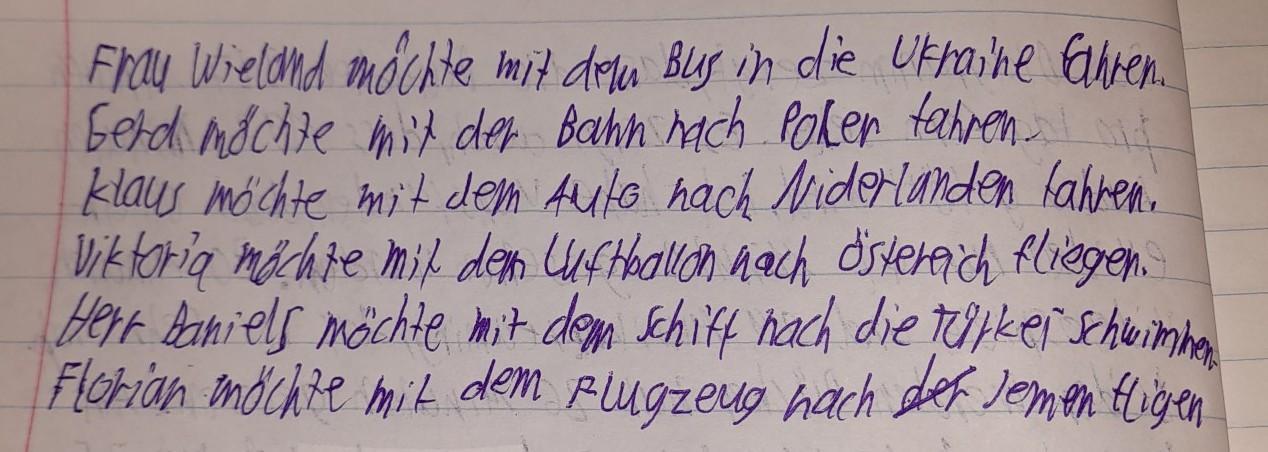 Frau Wieland möchte mit dem Bus in die Ukraine fahren.
Gerd möchte mit der Bahn nach Polen fahren.
Klaus möchte mit dem Auto nach Niderlanden fahren.
Viktoria möchte mit dem Luftballon nach östereich fliegen.
Herr Daniels möchte mit dem Schiff nach die Türkei schwimmen.
Florian möchte mit dem Flugzeug nach der Jemen fligen